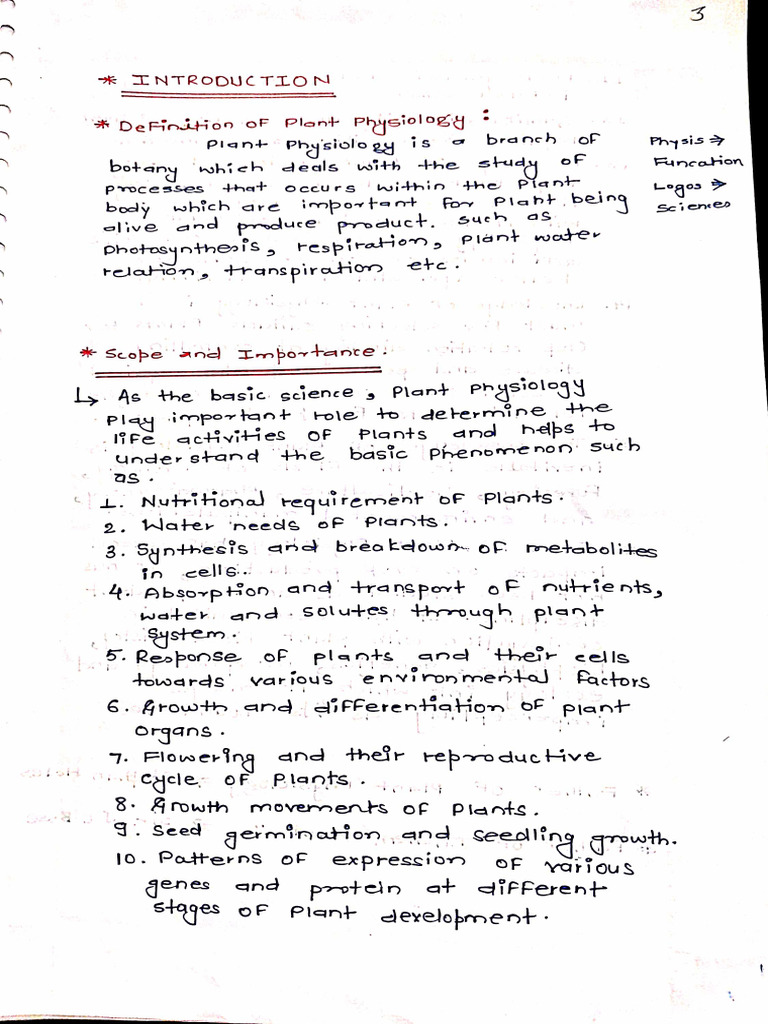 3
* INTRODUCTION
* Definition of Plant Physiology :
Plant Physiology is a branch of
botany which deals with the study of
processes that occurs within the Plant
body which are important for Plant being
alive and produce product. such as
Photosynthesis, respiration, Plant water
relation, transpiration etc.
Physis →
Funcation
Logos →
Sciences
* Scope and Importance.
↳ As the basic science, Plant Physiology
Play important role to determine the
life activities of Plants and helps to
understand the basic Phenomenon such
as.
1. Nutritional requirement of Plants.
2. Water needs of Plants.
3. Synthesis and breakdown of metabolites
in cells.
4. Absorption and transport of nutrients,
water and solutes through plant
system.
5. Response of plants and their cells
towards various environmental factors
6. Growth and differentiation of plant
organs.
7. Flowering and their reproductive
cycle of Plants.
8. Growth movements of Plants.
9. Seed germination and seedling growth.
10. Patterns of expression of various
genes and protein at different
stages of Plant development.